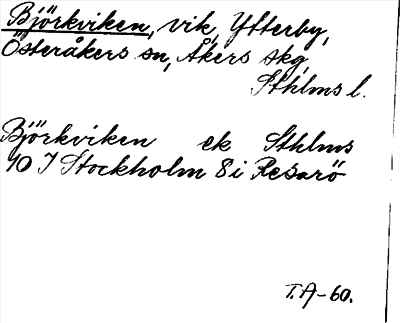 Björkviken, vik, Ytterby,
Österåkers sn, Åkers skg,
Sthlms l.
Björkviken ek Sthlms
10 I Stockholm 8 i Resarö
T.A-60.